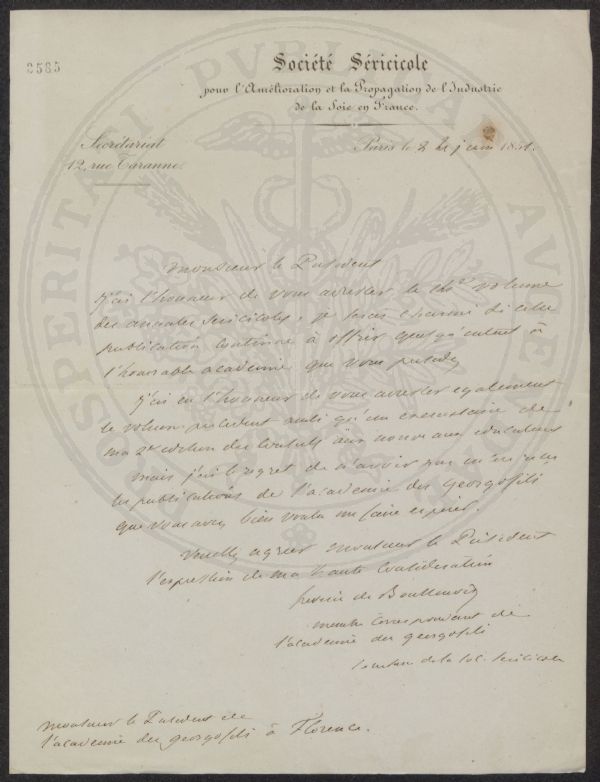 8585
Société Séricicole
pour l'Amélioration et la Propagation de l'Industrie
de la Soie en France.
Secrétariat
12, rue Taranne
Paris le 18
Monsieur le Président
j'ai l'honneur de vous adresser le volume
des annales Séricicoles, je serais charmé si cette
publication continue à offrir quelqu'intérêt à
l'honorable académie que vous présidez
j'ai eu l'honneur de vous adresser également
le volume précédent ainsi qu'un exemplaire de
ma 2e édition des Conseils aux nouveaux éducateurs
mais j'ai le regret de n'avoir pas reçu
les publications de l'académie des georgofili
que vous avez bien voulu me faire espérer.
veuillez agréer monsieur le Président
l'expression de ma haute Considération
de Boullenois
membre Correspondant de
l'académie des georgofili
de la Soc. Séricicole
monsieur le Président de
l'académie des georgofili à Florence.
PROSPERITATI PVBLICAE AVGENDAE